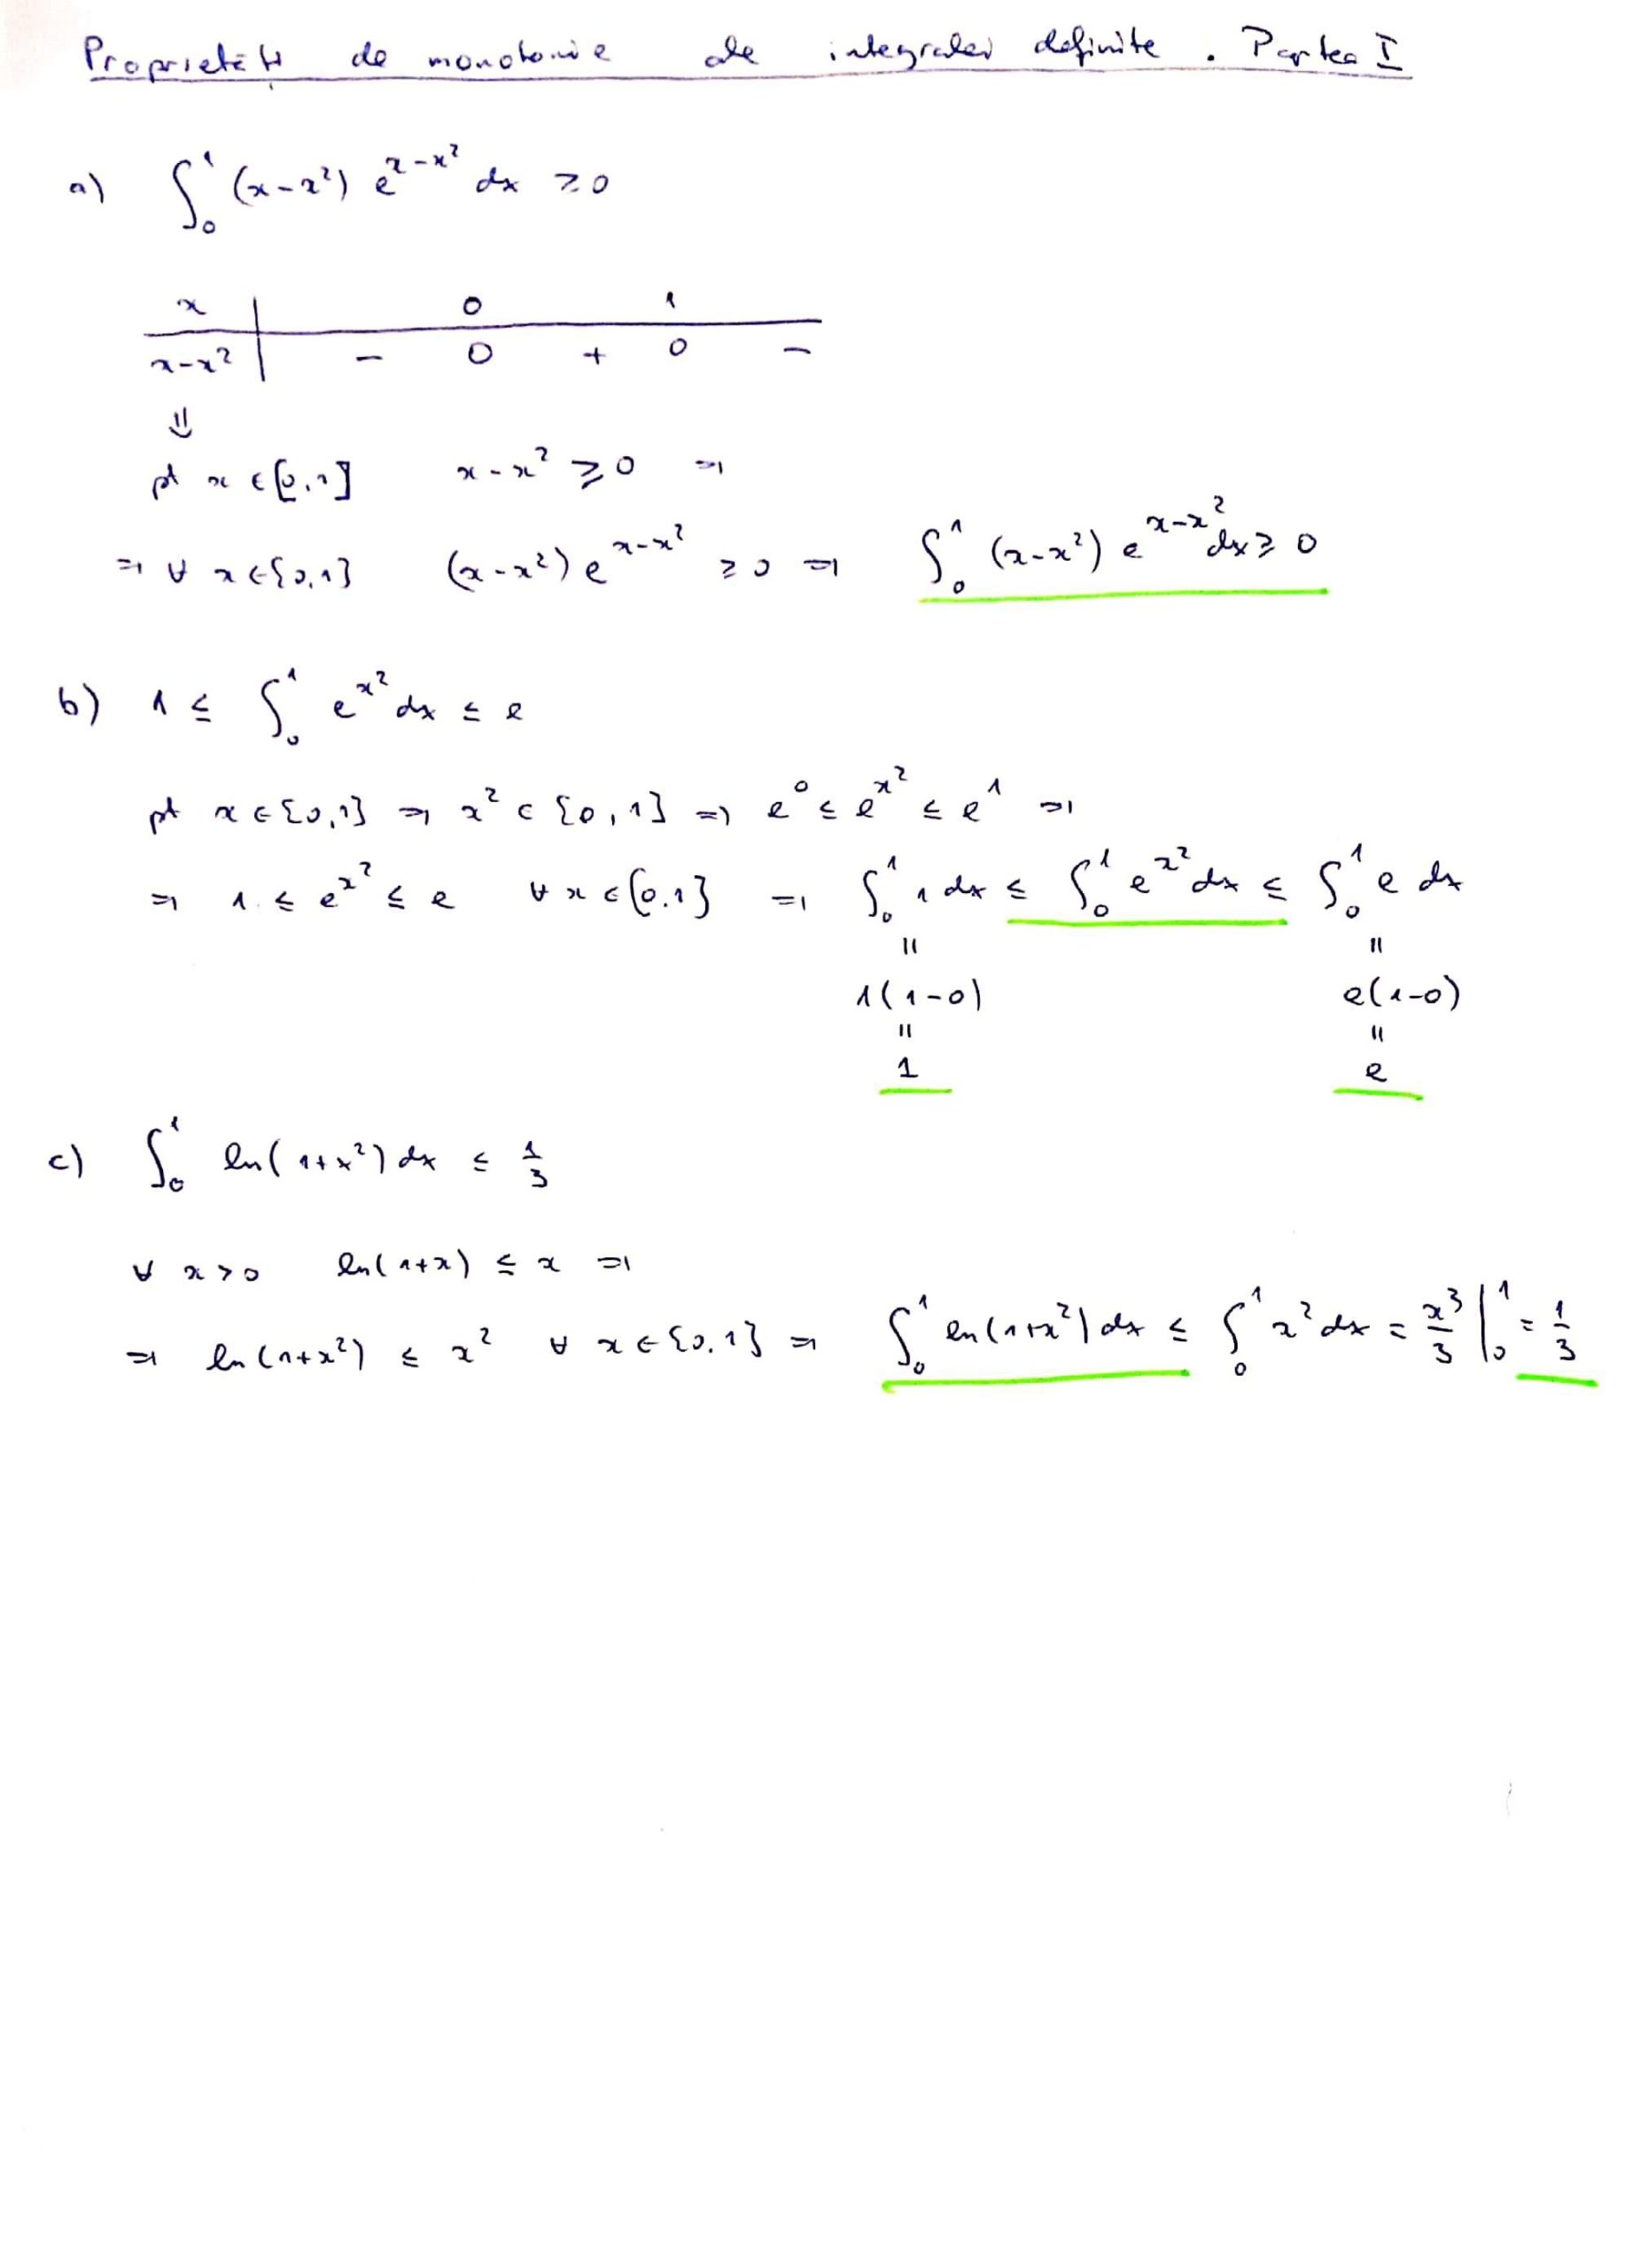 Proprietăți de monotonie ale integralei definite. Partea I
a) ∫₀¹ (x-x²) e^(x-x²) dx ≥ 0
x | 0 1
x-x² | - 0 + 0 -
⇓
pt x ∈ [0,1] x-x² ≥ 0 ⇒
⇒ ∀ x ∈ [0,1] (x-x²) e^(x-x²) ≥ 0 ⇒ ∫₀¹ (x-x²) e^(x-x²) dx ≥ 0
b) 1 ≤ ∫₀¹ e^(x²) dx ≤ e
pt x ∈ [0,1] ⇒ x² ∈ [0,1] ⇒ e⁰ ≤ e^(x²) ≤ e¹ ⇒
⇒ 1 ≤ e^(x²) ≤ e ∀ x ∈ [0,1] ⇒ ∫₀¹ 1 dx ≤ ∫₀¹ e^(x²) dx ≤ ∫₀¹ e dx
= =
1(1-0) e(1-0)
= =
1 e
c) ∫₀¹ ln(1+x²) dx ≤ 1/3
∀ x > 0 ln(1+x) ≤ x ⇒
⇒ ln(1+x²) ≤ x² ∀ x ∈ [0,1] ⇒ ∫₀¹ ln(1+x²) dx ≤ ∫₀¹ x² dx = x³/3 |₀¹ = 1/3